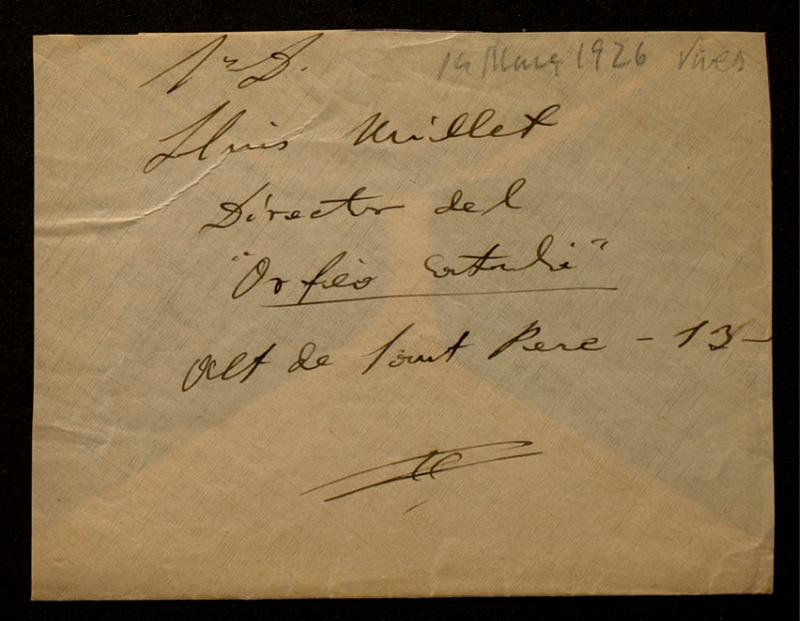 Sr D. 14 Març 1926 Vives
Lluis Millet
Director del
"Orfeó Català"
Alt de Sant Pere - 13 -